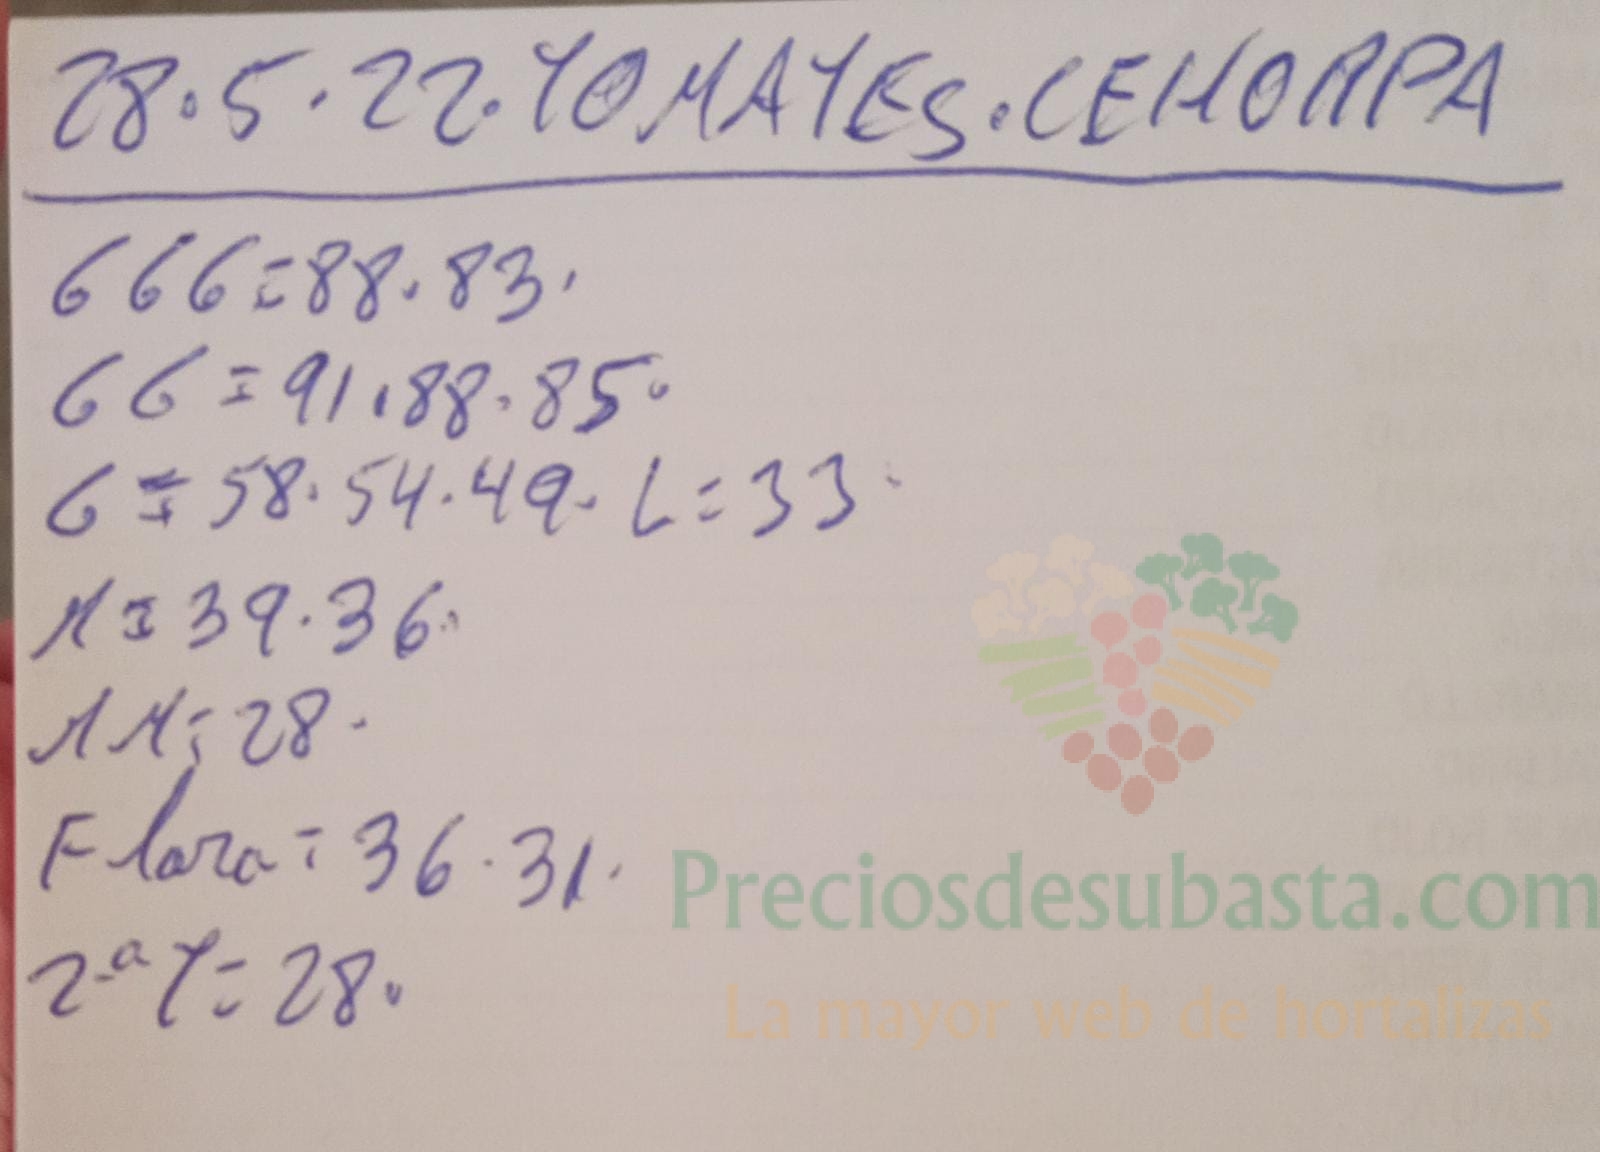 28.5.22.TOMATES.CEHORPA
GGG=88.83.
GG=91.88.85.
G=58.54.49. L=33.
M=39.36.
MM=28.
Flora=36.31.
2ªT=28.
Preciosdesubasta.com
La mayor web de hortalizas